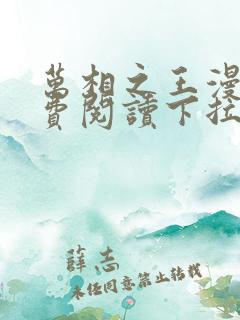 萬相之王漫
費閱讀下拉
薛志
未經同意禁止轉載